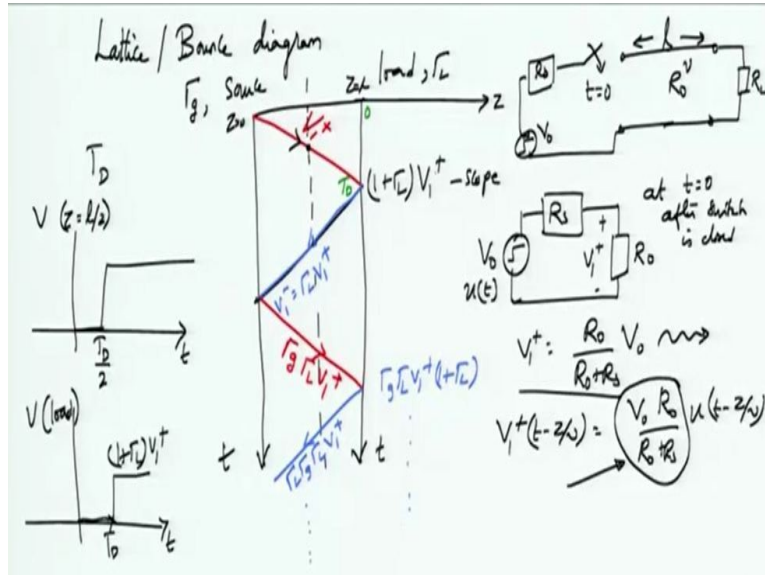 Lattice / Bounce diagram
Γg, Source
Z=0
Z=l
load, ΓL
z
0
TD
(1+ΓL) V1+ - scope
V1- = ΓL V1+
Γg ΓL V1+
Γg ΓL V1+ (1+ΓL)
ΓL Γg ΓL V1+
t
t
TD
V (z = l/2)
TD/2
t
V(load)
(1+ΓL) V1+
TD
t
Rs
t=0
l
R0 v
RL
V0
at t=0
after switch
is closed
Rs
V0
u(t)
+
V1+
-
R0
V1+ = R0/(R0+Rs) V0
V1+ (t-z/v) = V0 R0/(R0+Rs) u(t-z/v)